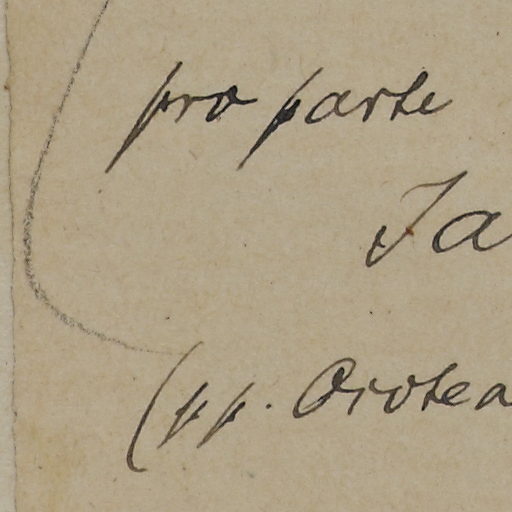 pro parte
Ja
(pp. Orotea